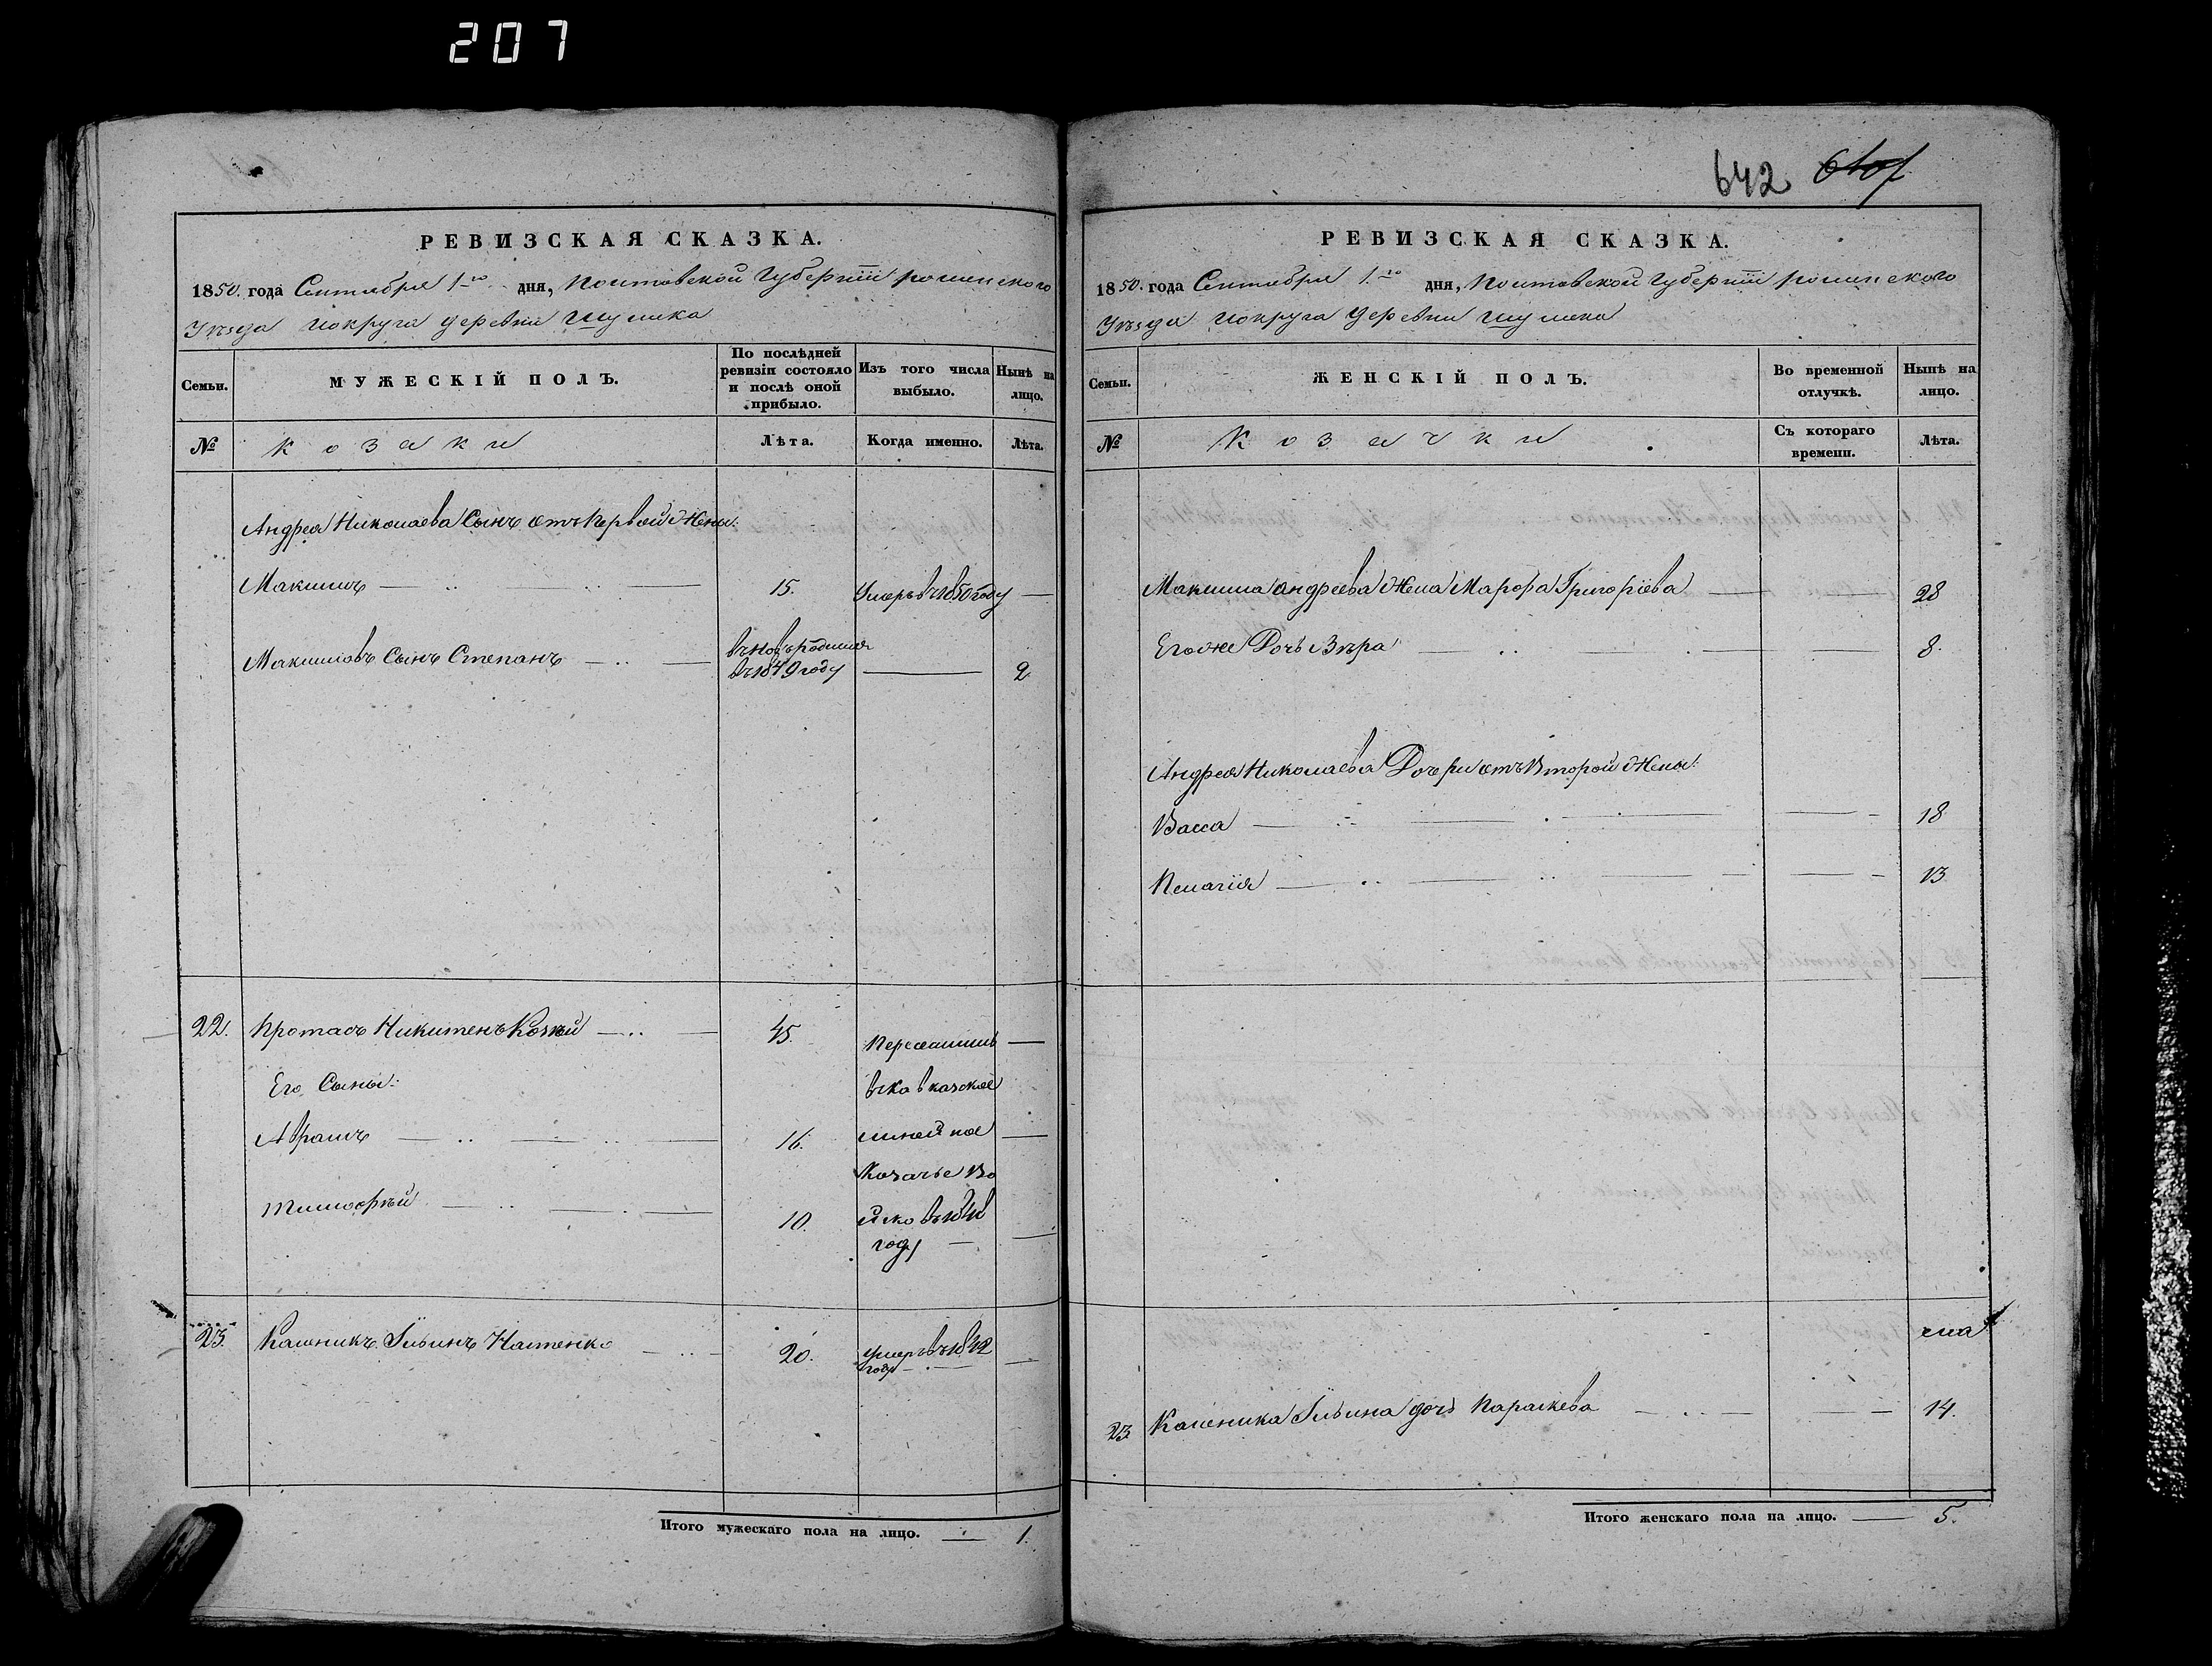 207
РЕВИЗСКАЯ СКАЗКА.
1850. года Сентября 1го дня, Полтавской Губернiи роменского
Уѣзда округа деревни Шумска
Семьи.
МУЖЕСКІЙ ПОЛЪ.
По послѣдней ревизіи состояло и послѣ оной прибыло.
Изъ того числа выбыло.
Нынѣ на лицо.
№
козаки
Лѣта.
Когда именно.
Лѣта.
Андрея Николаева Сынъ отъ Первой Жены:
Максимъ 15. Умеръ въ 1850 году
Максимовъ Сынъ Степанъ въновьродился въ 1849 году 2
22. Протасъ Никитенъ 45. Переселился
Его Сыны: въ Кавказское
Абрамъ 16. линейное
Козачье Во
Тимофѣй 10. йско въ
году
23. Каленикъ Ильинъ Натенко 20. умеръ въ 1842
году
Итого мужескаго пола на лицо. 1.
642 
РЕВИЗСКАЯ СКАЗКА.
1850. года Сентября 1го дня, Полтавской Губернiи роменского
Уѣзда округа деревни
Семьи.
ЖЕНСКІЙ ПОЛЪ.
Во временной отлучкѣ.
Нынѣ на лицо.
№
Козачки
Съ котораго времени.
Лѣта.
Максима андреева Жена Марфа Григорiева 28
Его же Дочь Вѣра 8.
Андрея Николаева Дочери отъ Второй Жены:
Васса 18
Пелагiя 13
23 Каленика Ильина дочь Параскева 14.
Итого женскаго пола на лицо. 5.